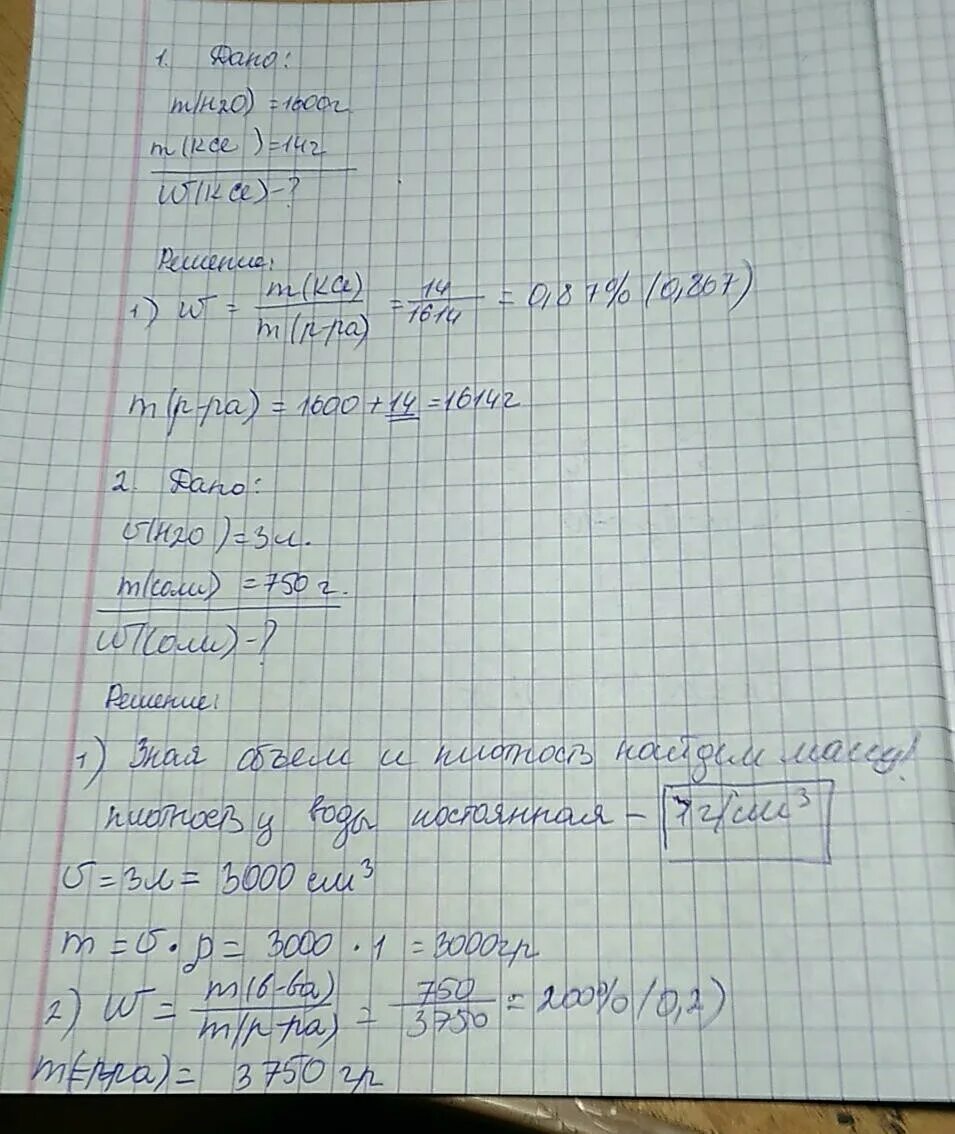 1. Дано:
m(H2O) = 1600г
m(KCl) = 14г
W(KCl) - ?
Решение:
1) W = m(KCl) / m(р-ра) = 14 / 1614 = 0,87% (0,867)
m(р-ра) = 1600 + 14 = 1614г
2. Дано:
V(H2O) = 3л.
m(соли) = 750 г.
W(соли) - ?
Решение:
1) Зная объем и плотность найдем массу!
плотность у воды постоянная - 1г/см³
V = 3л = 3000 см³
m = V · ρ = 3000 · 1 = 3000гр
2) W = m(в-ва) / m(р-ра) = 750 / 3750 = 200% (0,2)
m(р-ра) = 3750 гр